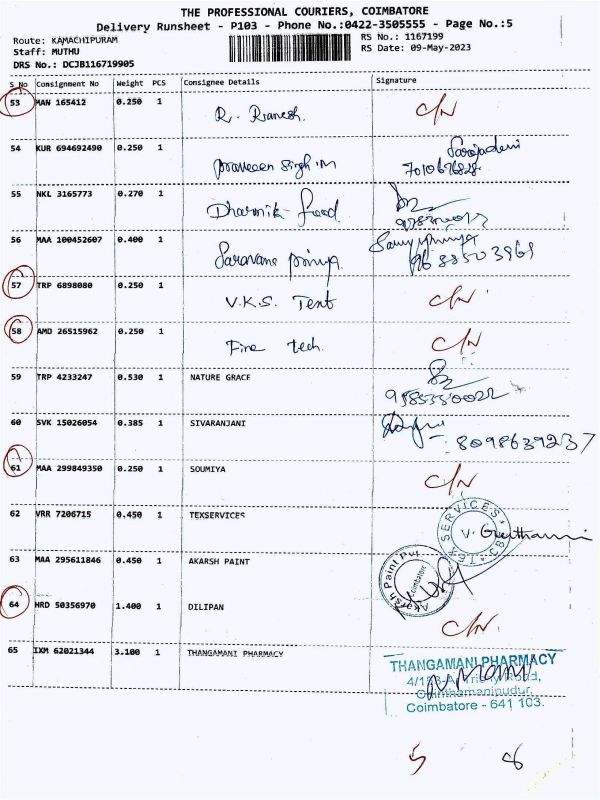 THE PROFESSIONAL COURIERS, COIMBATORE
Delivery Runsheet - P103 - Phone No.:0422-3505555 - Page No.:5
Route: KAMACHIPURAM
RS No.: 1167199
Staff: MUTHU
RS Date: 09-May-2023
DRS No.: DCJB116719905
S No Consignment No Weight PCS Consignee Details Signature
53 MAN 165412 0.250 1 R. Ranesh. C/N
54 KUR 694692490 0.250 1 praveen singh.M
55 NKL 3165773 0.270 1 Dharmik food
56 MAA 100452607 0.400 1 Saravana priya
57 TRP 6898080 0.250 1 V.K.S. Tent C/N
58 AMD 26515962 0.250 1 Fine tech. C/N
59 TRP 4233247 0.530 1 NATURE GRACE
60 SVK 15026054 0.385 1 SIVARANJANI 8098639237
61 MAA 299849350 0.250 1 SOUMIYA C/N
62 VRR 7206715 0.450 1 TEXSERVICES
TEX SERVICES CBE
63 MAA 295611846 0.450 1 AKARSH PAINT
Akarsh Paint Pvt
Coimbatore
64 HRD 50356970 1.400 1 DILIPAN C/N
65 IXM 62021344 3.100 1 THANGAMANI PHARMACY
THANGAMANI PHARMACY
Road,
Coimbatore - 641 103.
5 8